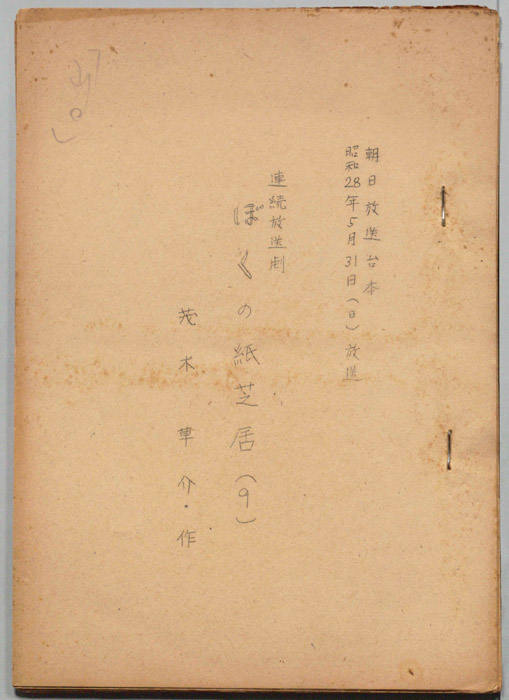 朝日放送台本
昭和28年5月31日(日)放送
連続放送劇
ぼくの紙芝居(9)
茂木草介・作